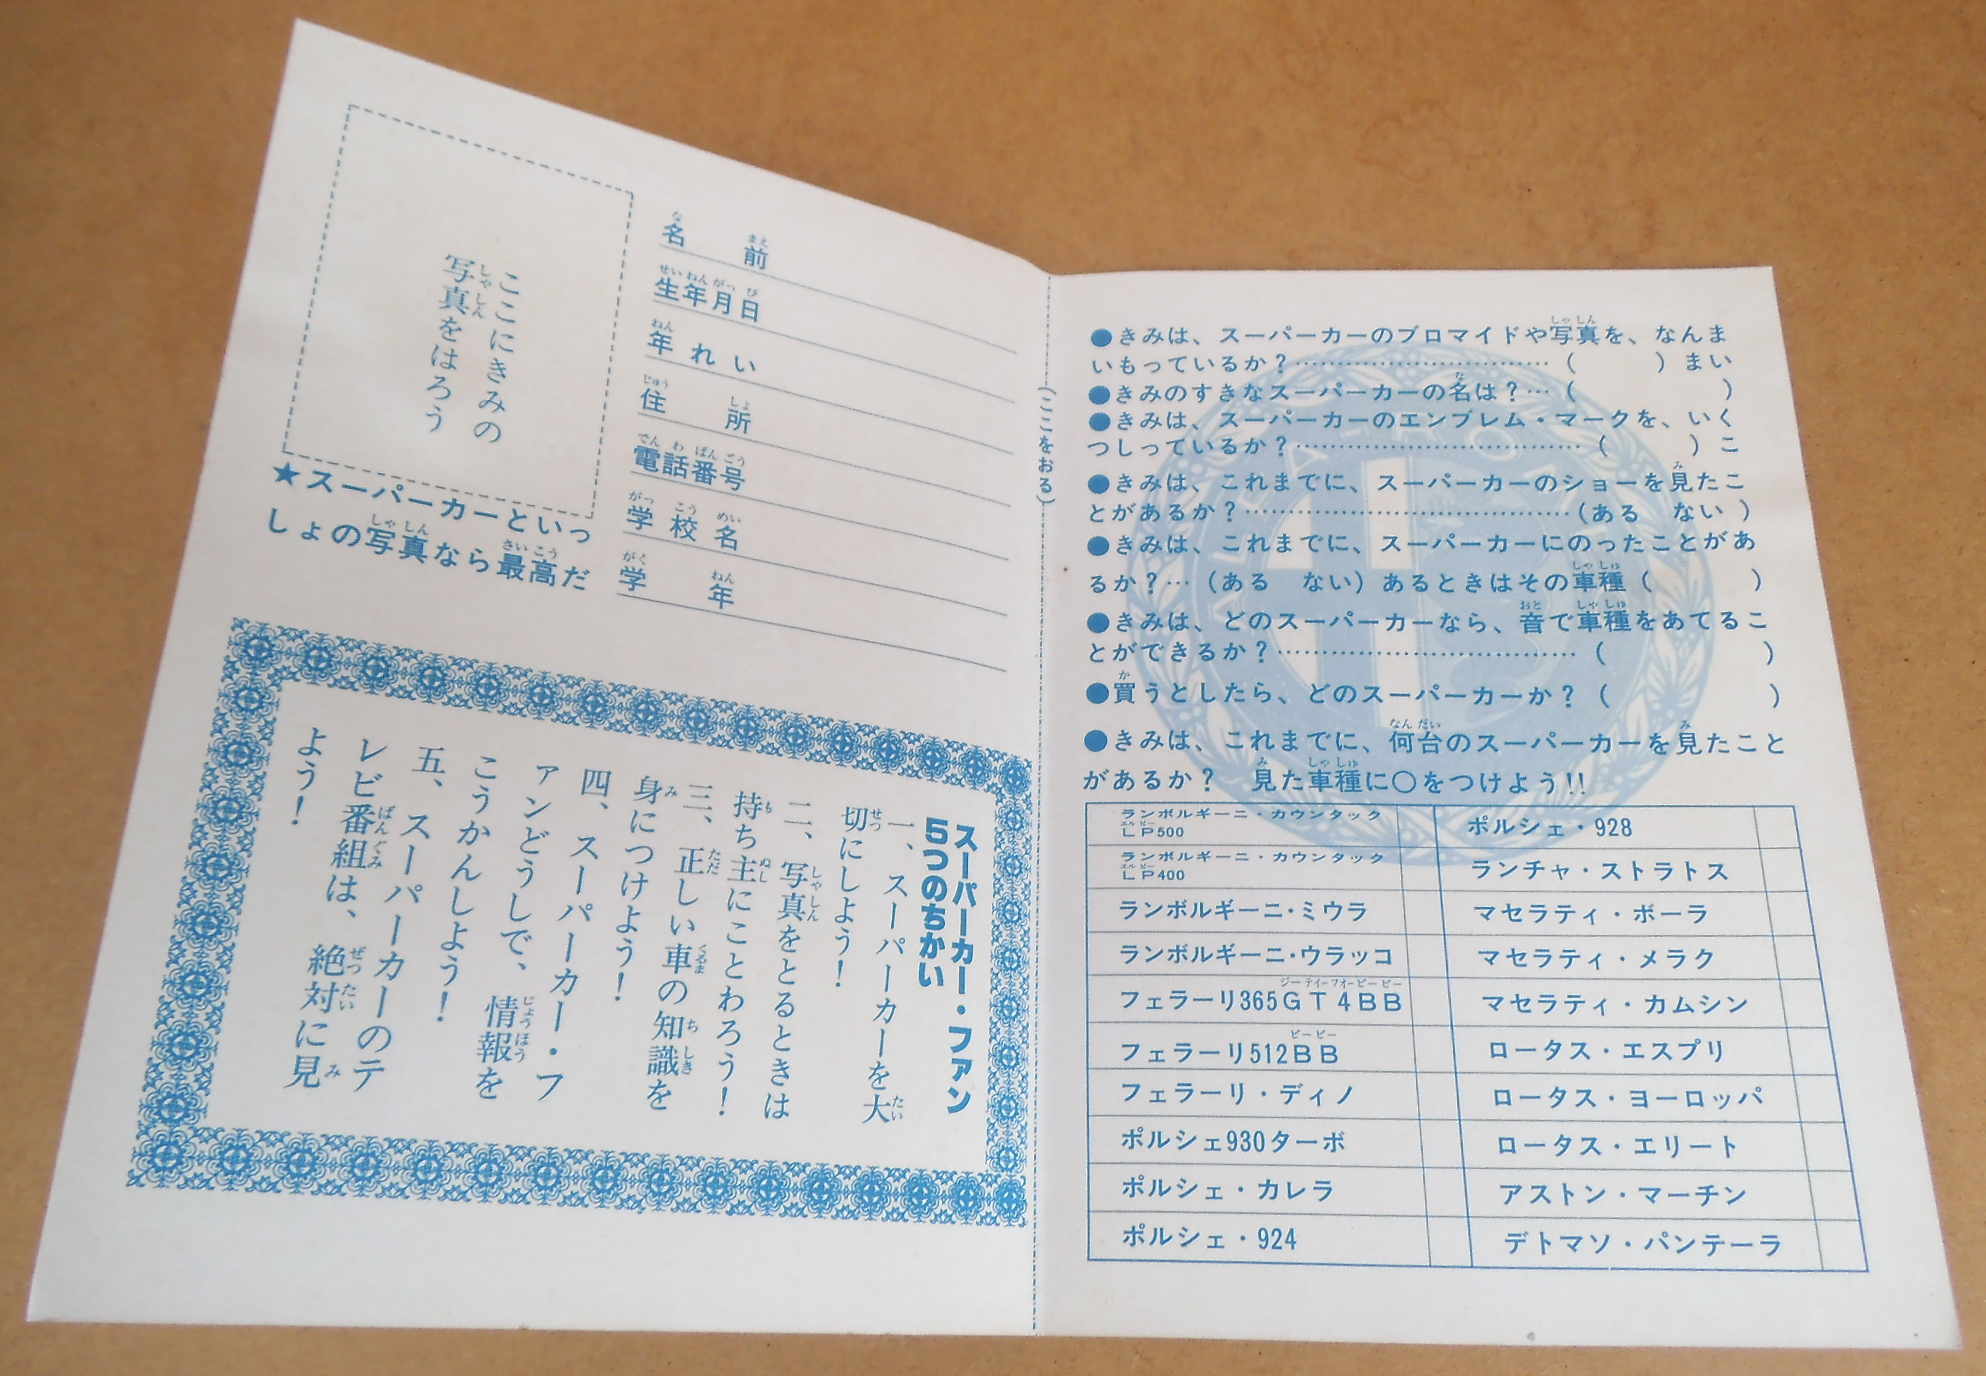 ここにきみの
写真をはろう
★スーパーカーといっ
しょの写真なら最高だ
名前
生年月日
年れい
住所
電話番号
学校名
学年
スーパーカー・ファン
5つのちかい
一、スーパーカーを大
切にしよう！
二、写真をとるときは
持ち主にことわろう！
三、正しい車の知識を
身につけよう！
四、スーパーカー・フ
ァンどうしで、情報を
こうかんしよう！
五、スーパーカーのテ
レビ番組は、絶対に見
よう！
（ここをおる）
●きみは、スーパーカーのブロマイドや写真を、なんま
いもっているか？…………………………（　　　）まい
●きみのすきなスーパーカーの名は？…（　　　　　　）
●きみは、スーパーカーのエンブレム・マークを、いく
つしっているか？……………………………（　　　）こ
●きみは、これまでに、スーパーカーのショーを見たこ
とがあるか？…………………………………（ある　ない）
●きみは、これまでに、スーパーカーにのったことがあ
るか？…（ある　ない）あるときはその車種（　　　　）
●きみは、どのスーパーカーなら、音で車種をあてるこ
とができるか？………………………………（　　　　　　）
●買うとしたら、どのスーパーカーか？（　　　　　　）
●きみは、これまでに、何台のスーパーカーを見たこと
があるか？　見た車種に○をつけよう!!
ランボルギーニ・カウンタック
LP500
ランボルギーニ・カウンタック
LP400
ランボルギーニ・ミウラ
ランボルギーニ・ウラッコ
フェラーリ365GT4BB
フェラーリ512BB
フェラーリ・ディノ
ポルシェ930ターボ
ポルシェ・カレラ
ポルシェ・924
ポルシェ・928
ランチャ・ストラトス
マセラティ・ボーラ
マセラティ・メラク
マセラティ・カムシン
ロータス・エスプリ
ロータス・ヨーロッパ
ロータス・エリート
アストン・マーチン
デトマソ・パンテーラ